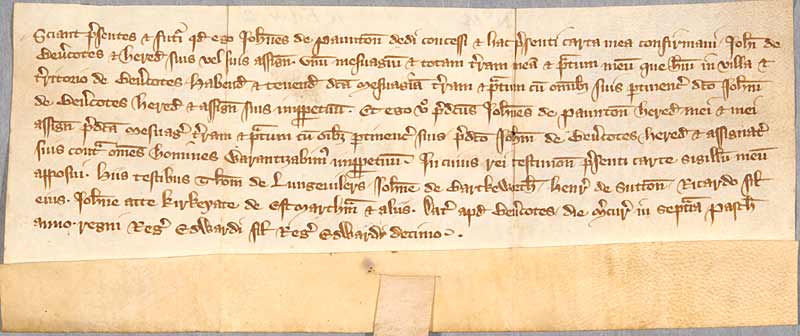 Sciant p'sentes & futri qd ego Joh'nes de Paunton dedi concessi & hac p'senti carta mea confirmavi Joh'i de
Bev'cotes & hered suis vel suis assign unu' mesuagiu' & totam t'ram mea' & p'tum meu' que h'ui in villa &
t'ritorio de Bev'cotes. Habend & tenend d'ta' mesuagiu' t'ram & p'tum cu' omib' suis p'tinenc' d'to Joh'i
de Bev'cotes hered & assign suis imp'petuu'. Et ego v'o p'd'cus Joh'nes de Paunton hered mei & mei
assign p'd'ta' mesuag' t'ram & p'tum cum oib' p'tinenc' suis p'd'to Joh'i de Bev'cotes hered & assignat'
suis cont' om'es homines Warantizabim' imp'petuu'. In cuius rei testimon' p'senti carte sigillu' meu'
apposui. Hiis testibus Thom' de Lungevilers. Joh'ne de Barkeworth. Henr' de Sutton. Ricardo fil
eius. Joh'ne atte Kirkeyate de Estmarkh'm & aliis. Dat' apd Bev'cotes die M'cur' in septi'a Pasch
anno regni Reg' Edwardi fil Reg' Edwardi decimo.